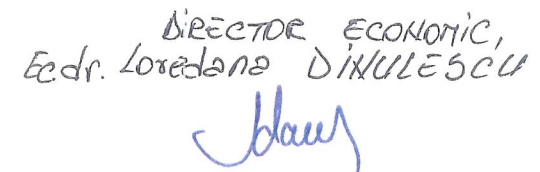 DIRECTOR ECONOMIC,
Ec dr. Loredana DINULESCU